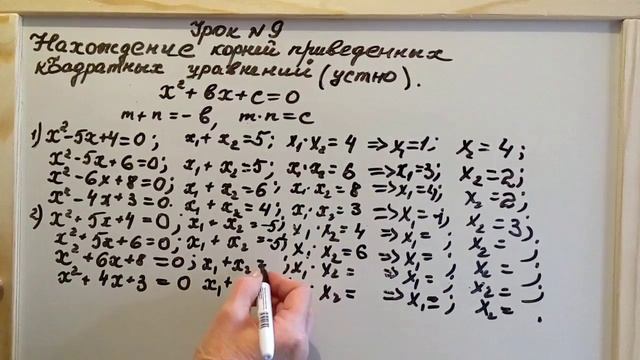 Урок №9
Нахождение корней приведенных
квадратных уравнений (устно).
x²+bx+c=0
m+n=-b, m·n=c
1) x²-5x+4=0; x₁+x₂=5; x₁·x₂=4 => x₁=1; x₂=4;
x²-5x+6=0; x₁+x₂=5; x₁·x₂=6 => x₁=3; x₂=2;
x²-6x+8=0; x₁+x₂=6; x₁·x₂=8 => x₁=4; x₂=2;
x²-4x+3=0. x₁+x₂=4; x₁·x₂=3 => x₁=1; x₂=3;
2) x²+5x+4=0; x₁+x₂=-5; x₁·x₂=4 => x₁= ; x₂= ;
x²+5x+6=0; x₁+x₂=-5; x₁·x₂=6 => x₁= ; x₂= ;
x²+6x+8=0; x₁+x₂= ; x₁·x₂= => x₁= ; x₂= ;
x²+4x+3=0 x₁+ · x₂= => x₁= ; x₂= .